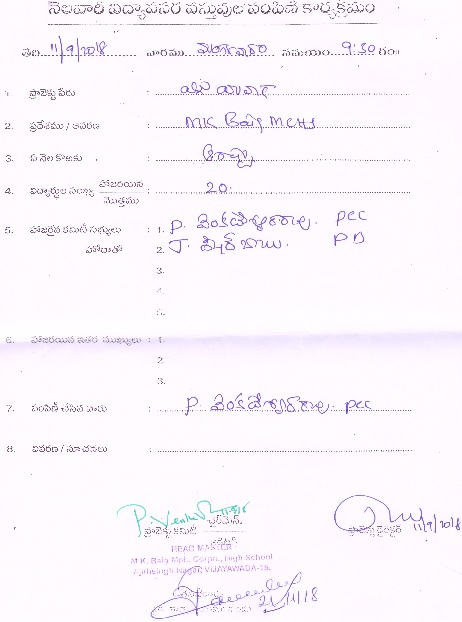 నెలవారీ విద్యావసర వస్తువుల పంపిణీ కార్యక్రమం
తేది 11/9/2018 వారము మంగళవారం సమయం 9:30 గం
1. ప్రాజెక్టు పేరు :
2. ప్రదేశము / ఆవరణ : MK Baig MCHS
3. ఏ నెల కొఱకు :
4. విద్యార్థుల సంఖ్య హాజరయిన / మొత్తము : 20
5. హాజరైన కమిటీ సభ్యులు : 1. P. వెంకటేశ్వరరావు. PCC
హోదాతో 2. J. PD
3.
4.
5.
6. హాజరయిన ఇతర ముఖ్యులు : 1.
2.
3.
7. పంపిణీ చేసిన వారు : P. వెంకటేశ్వరరావు. PCC
8. వివరణ / సూచనలు :
P. Venkat 11/9/18
ప్రాజెక్టు కమిటీ ఛైర్మెన్
ప్రాజెక్టు డైరెక్టర్ 11/9/2018
HEAD MASTER
M.K. Baig Mpl. Corpn., High School
Ajithsingh Nagar, VIJAYAWADA-15.
21/11/18